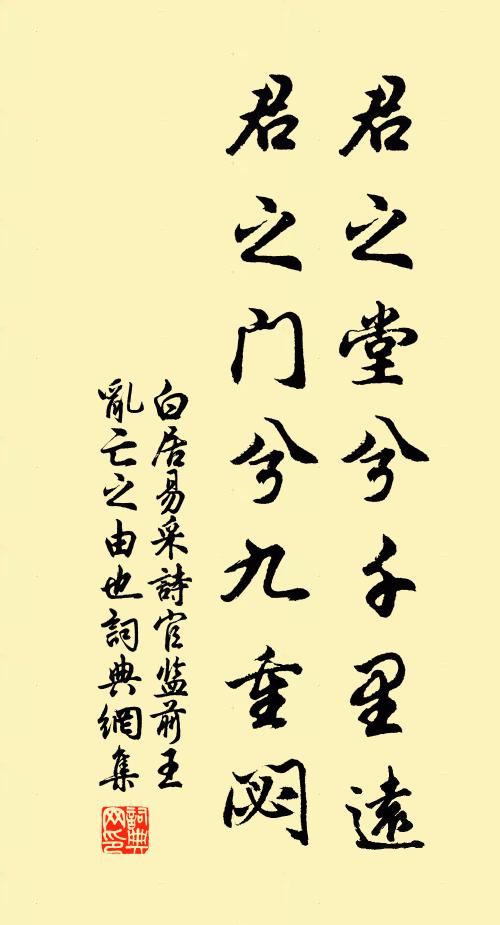 君之堂兮千里遠
君之门兮九重閟
白居易采詩官监前王
亂亡之由也詞典網集
詞典网印